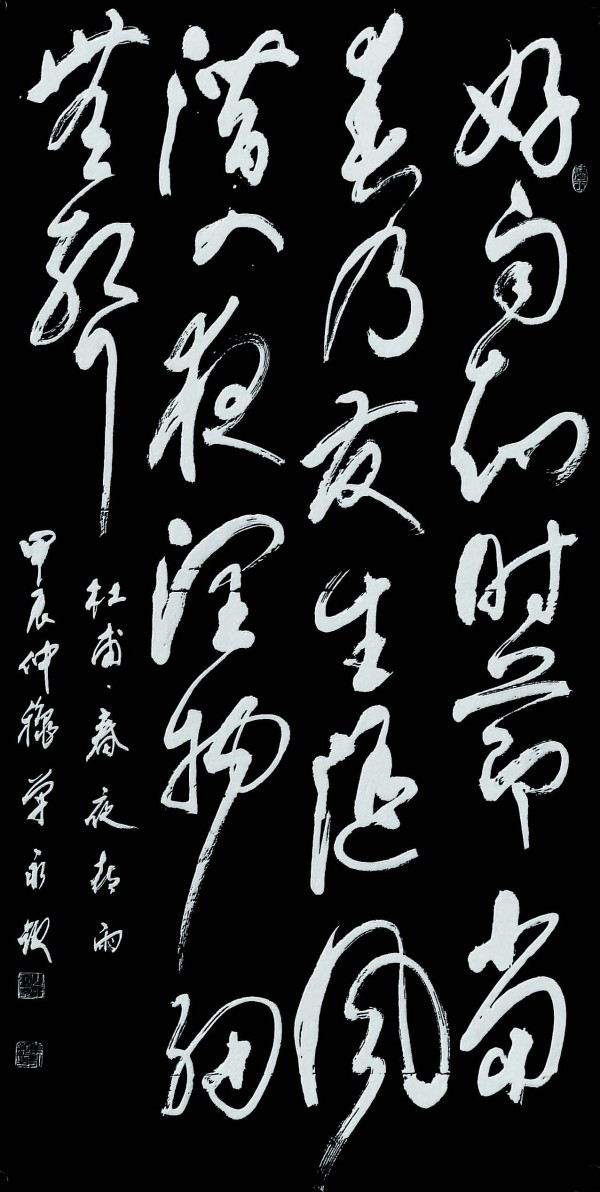 好雨知时節当
春乃发生随风
潜入夜润物细
無聲
杜甫·春夜喜雨
甲辰仲穐 永